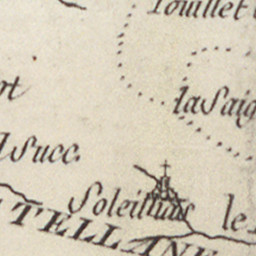 Touillet
la Saig
rt
Succ.
Soleillas
le
TELLANE